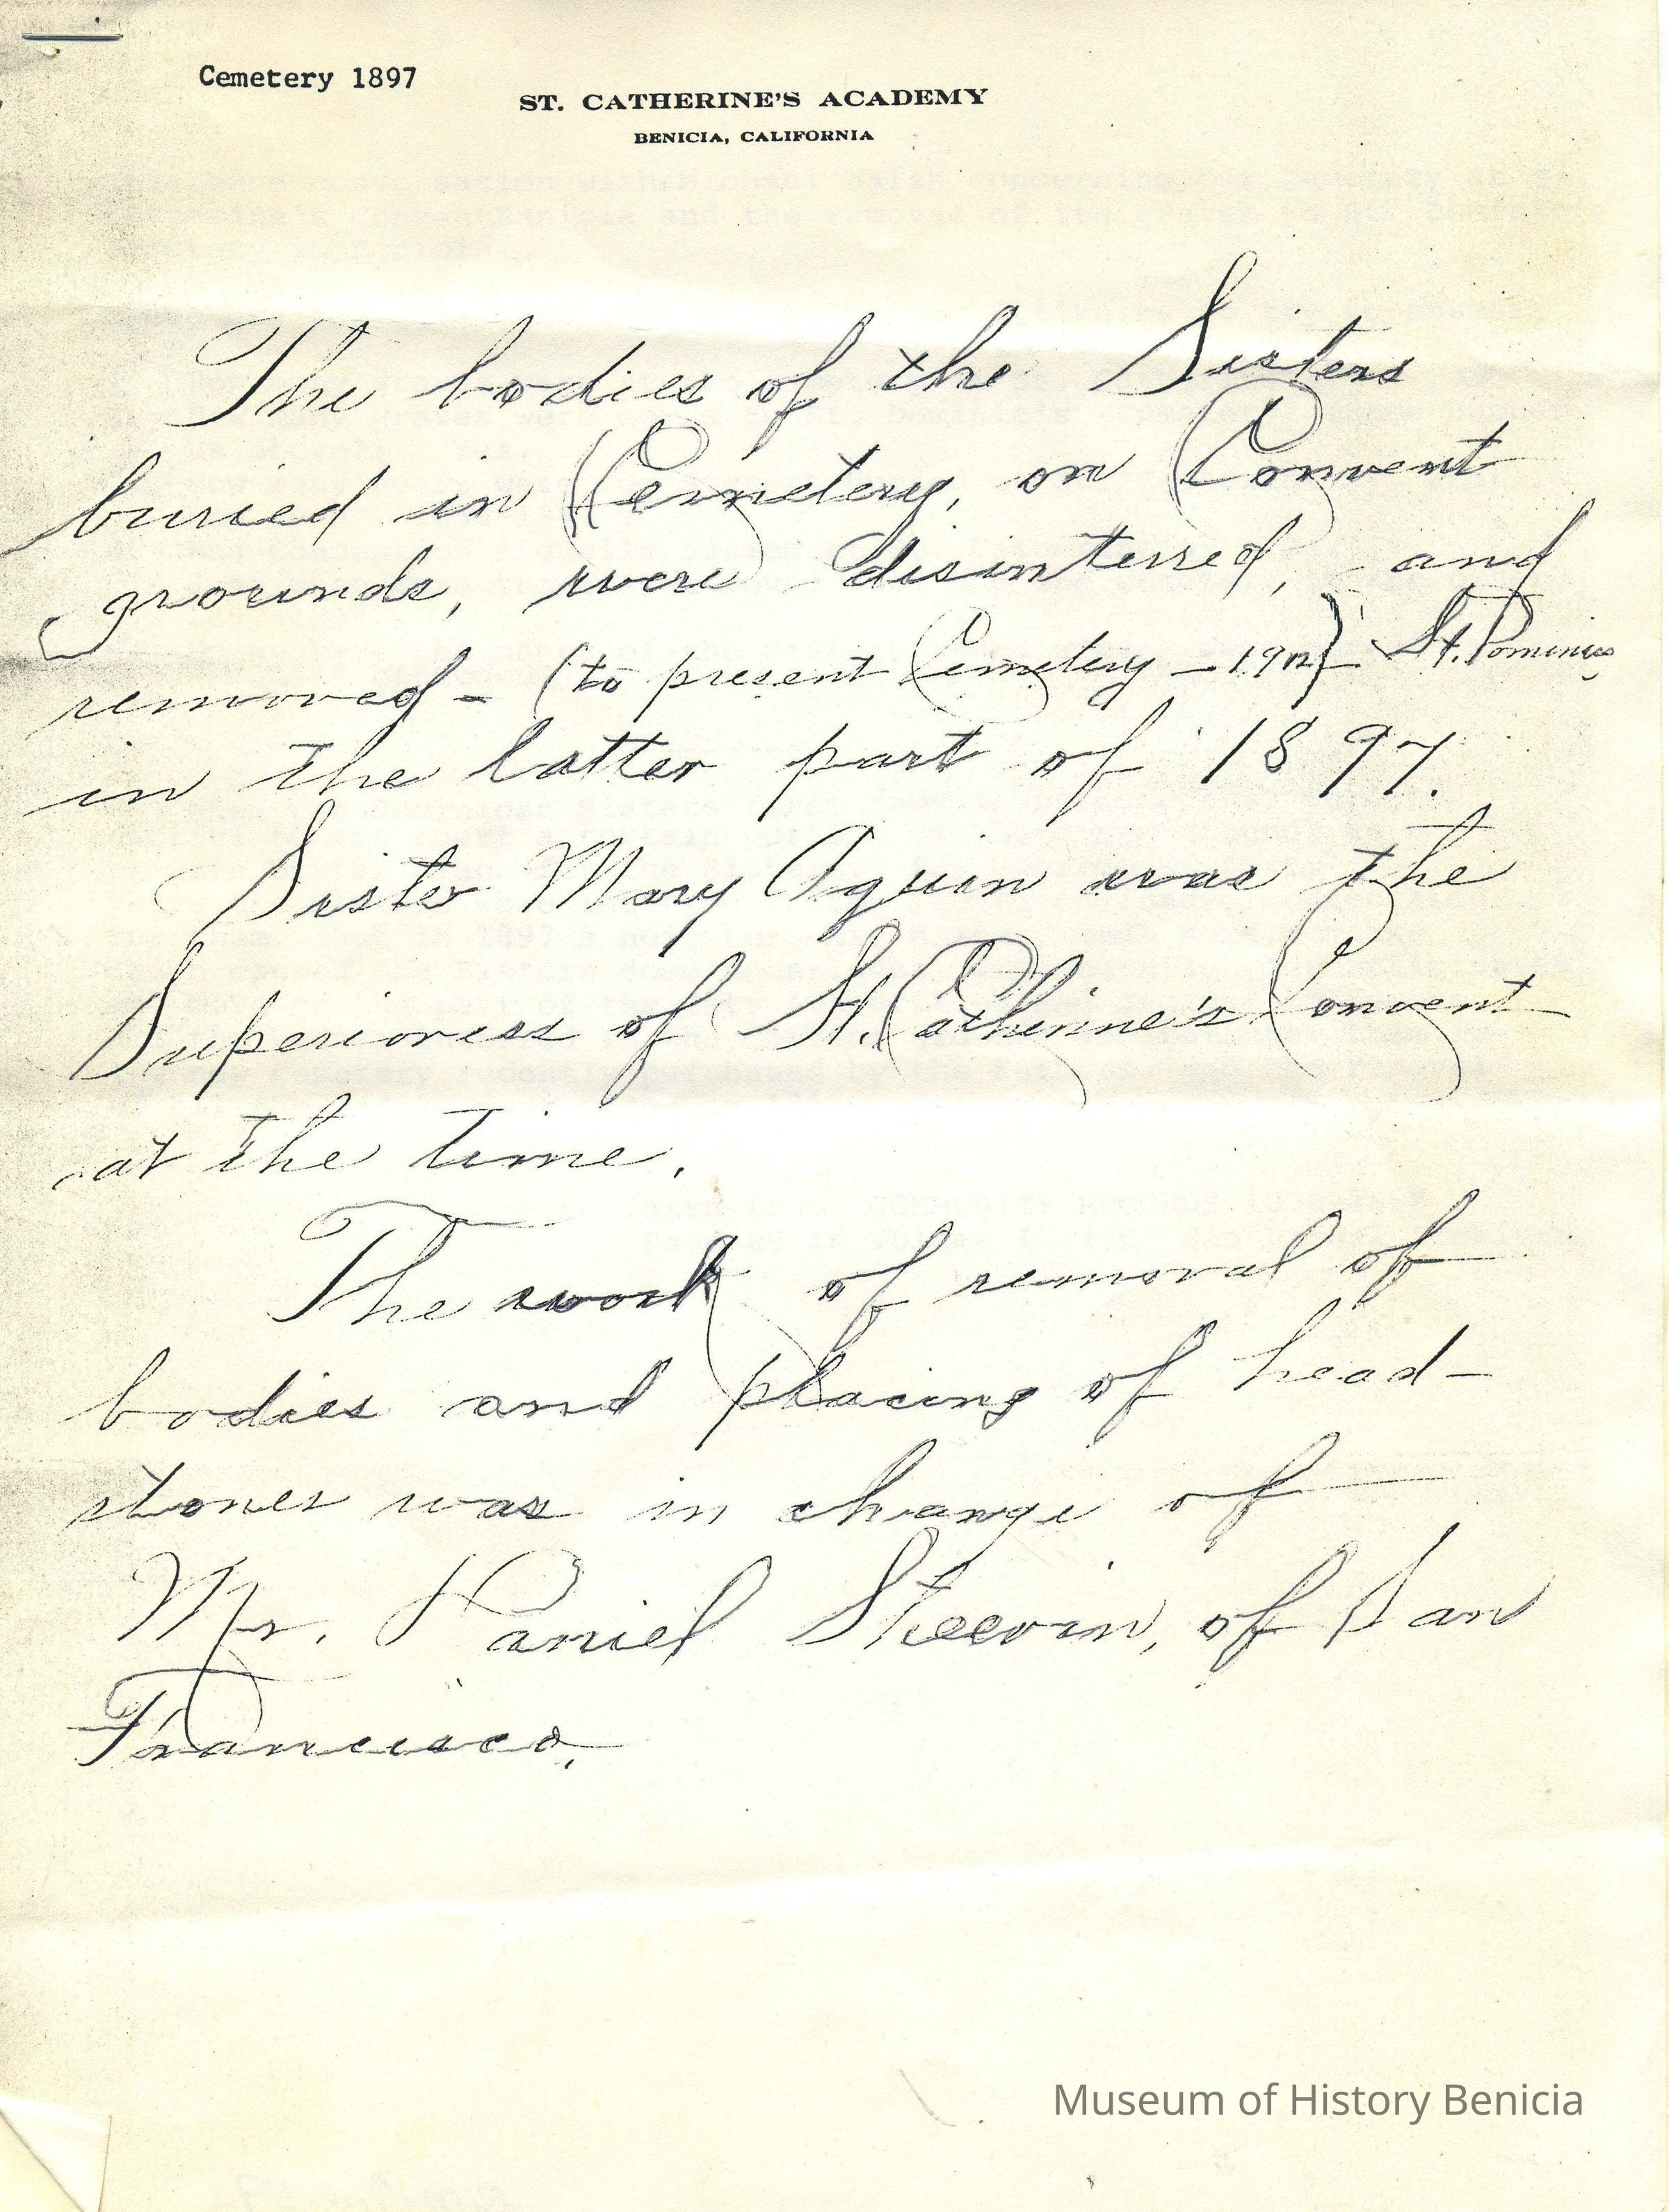 Cemetery 1897
ST. CATHERINE'S ACADEMY
BENICIA, CALIFORNIA
The bodies of the Sisters
buried in Cemetery, on Convent
grounds, were disinterred, and
removed - (to present Cemetery - ) - St. Dominic's
in the latter part of 1897.
Sister Mary Aquin was the
Superioress of St. Catherine's Convent
at the time.
The work of removal of
bodies and placing of head-
stones was in charge of
Mr. Daniel of San
Francisco.
Museum of History Benicia